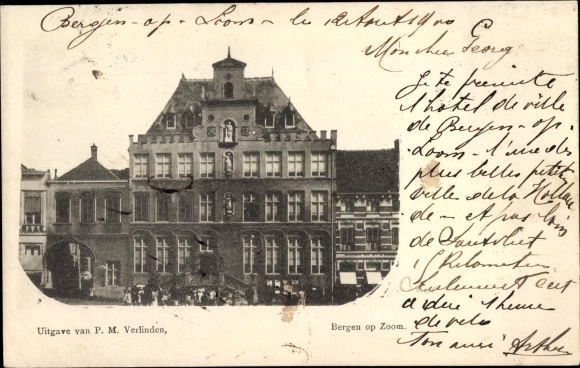 Bergen-op-Zoom - le 12 Aout 1900
Mon cher Georg
Je te présente
l'hotel de ville
de Bergen-op-
Zoom - l'une des
plus belles petit
ville de la Hollan
de - et pas loin
de Santvliet
Kilometer
Seulement c'est
a dire 1 heure
de velo
Ton ami Arthur
Uitgave van P. M. Verlinden,
Bergen op Zoom.